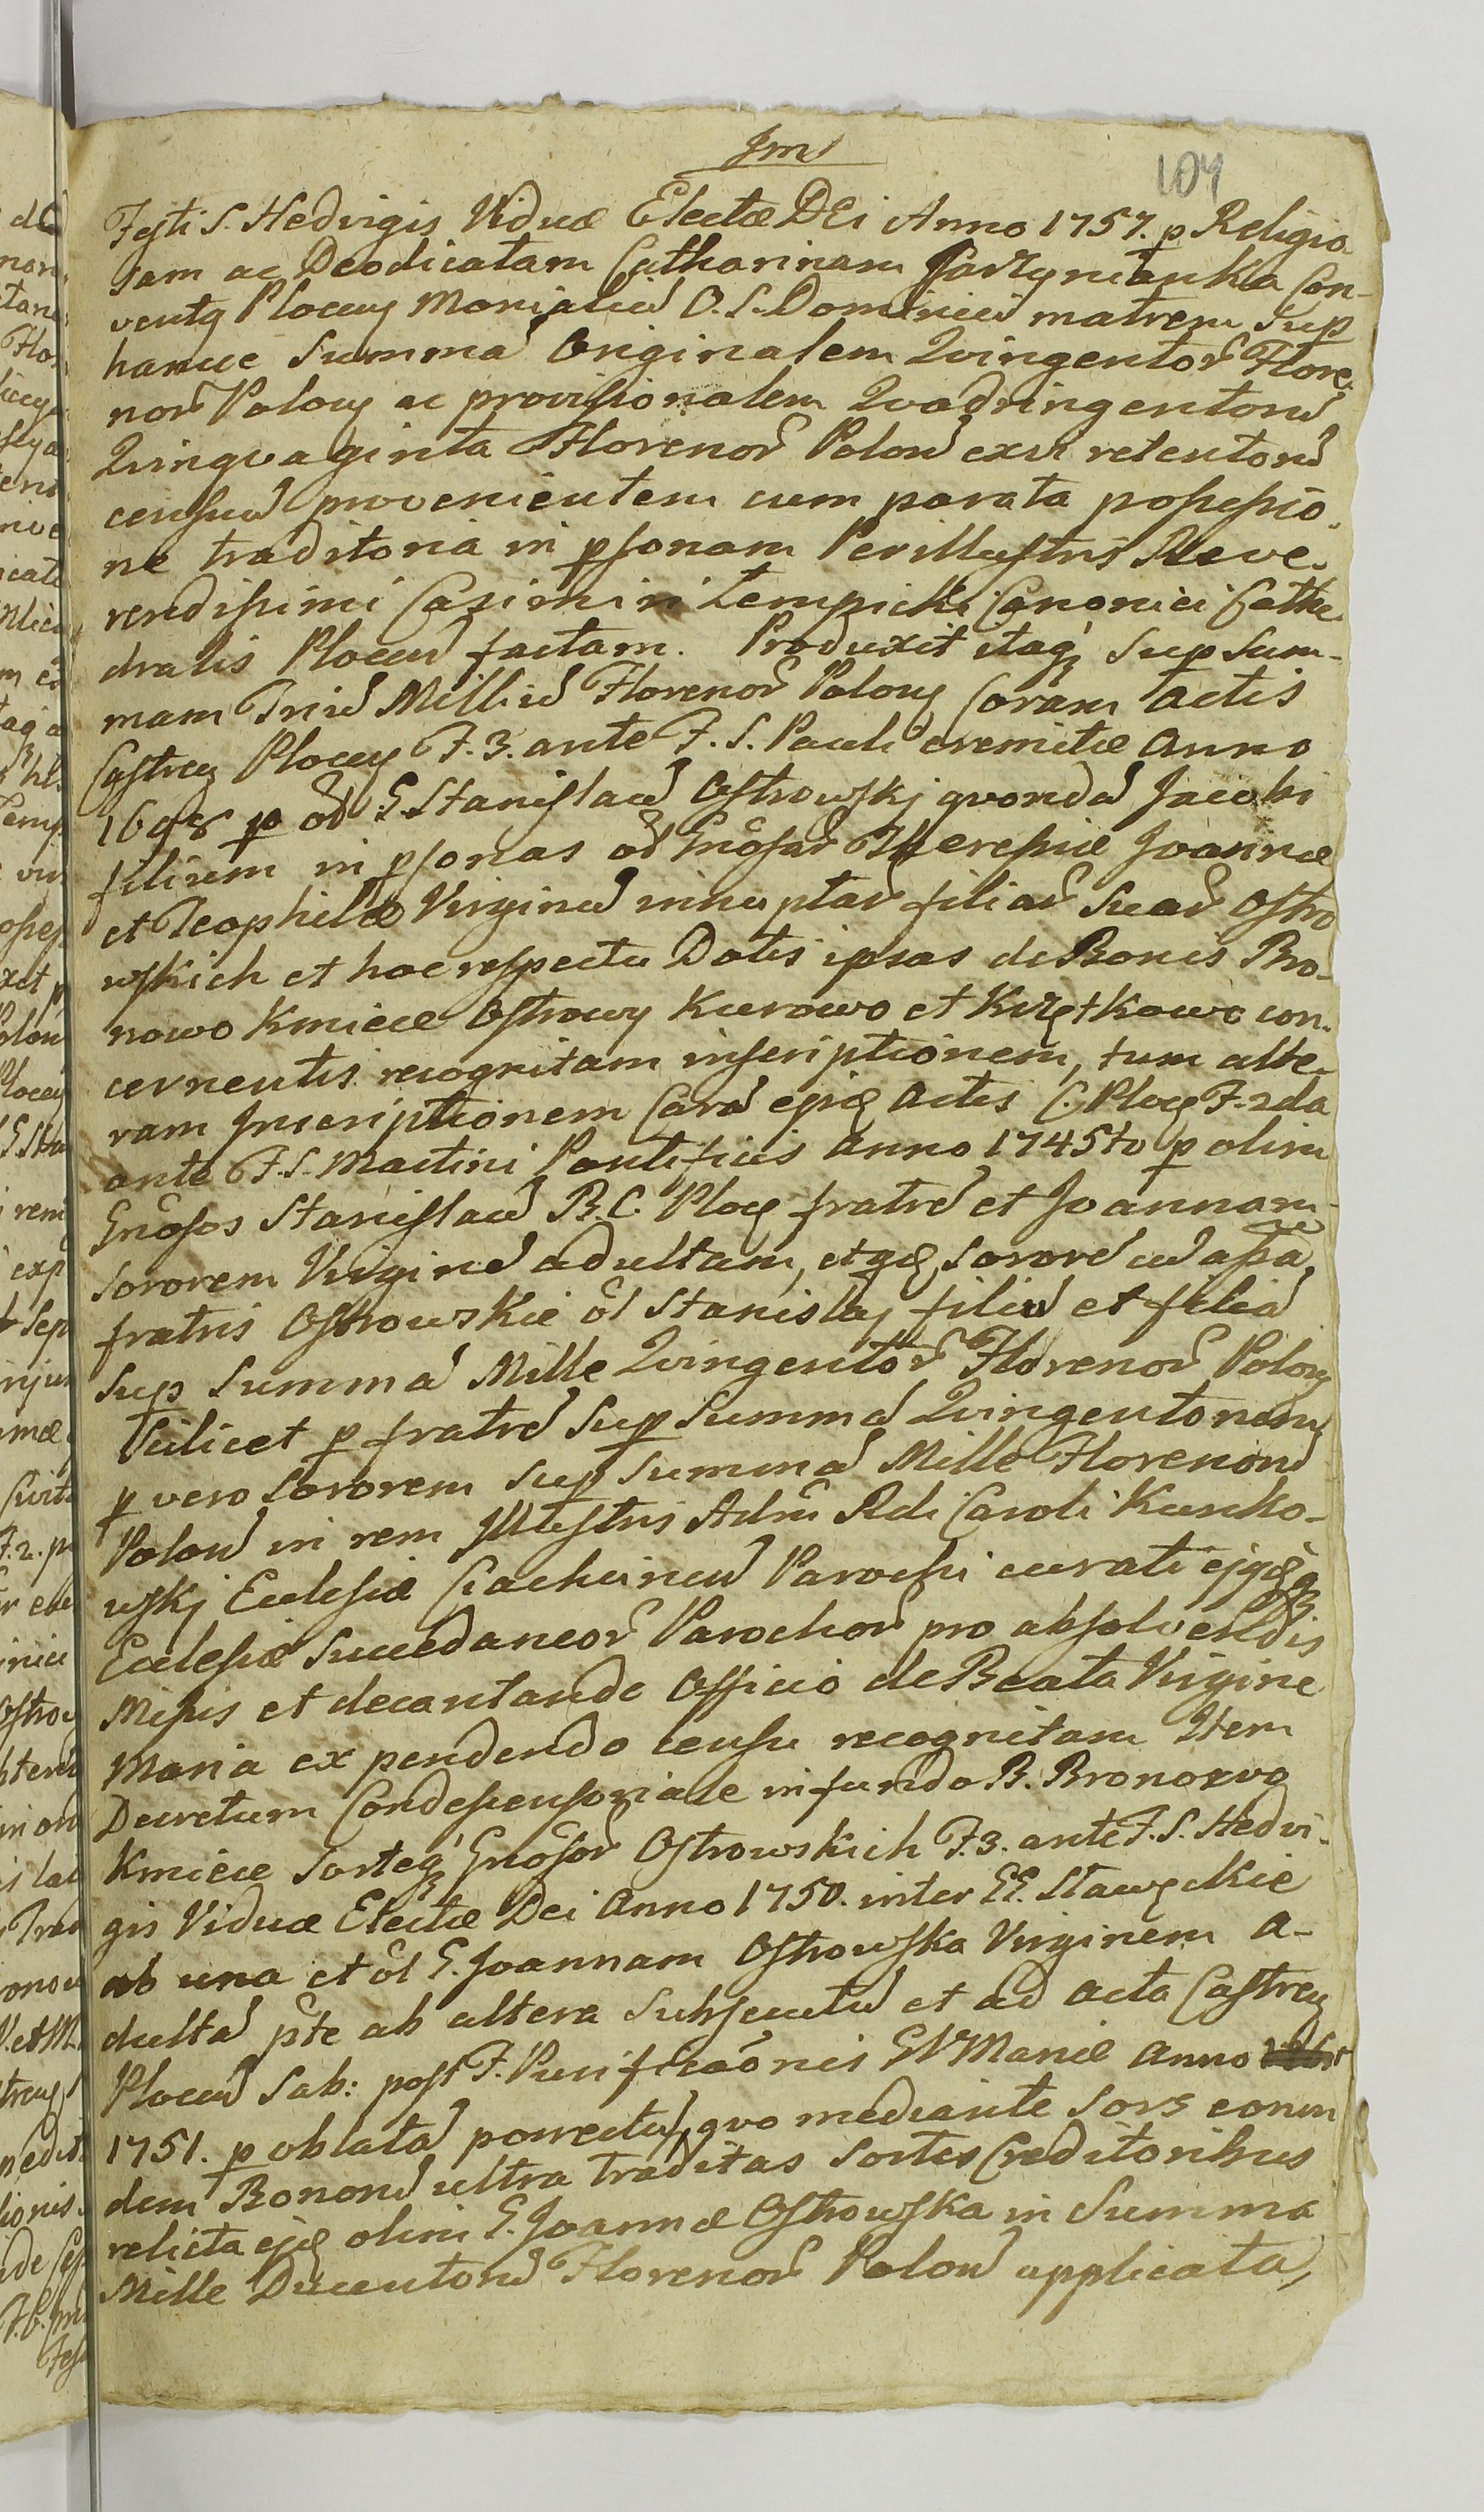 Jm
104
Festi S. Hedvigis Viduæ Electæ DEi Anno 1757. p Religio
sam ac Deodicatam Catharinam Con-
ventq Plocen Monialiu O. S. Dominici matrem Sup
hancce Summa Originalem Qvingentor Flore-
nor Polon ac provisionalem Qvadringentoru
Qvinqvaginta Florenor Polon exvi retentoru
censuu provenientem cum parata possessio-
ne traditoria in psonam Perillustris Reve-
rendissimi Casimiri Lempicki Canonici Cathe
dralis Plocen factam. Produxit itaq Sup Sum-
mam Triu Milliu Florenor Polon Coram Actis
Castren Plocen F. 3. ante F. S. Pauli eremitæ Anno
1698 p ol G Stanislau Ostrowski qvondа Jacobi
filium in psonas ol Gnosar Theressiæ Joannæ
et Teophilæ Virginu innuptar filiar Suar Ostro
wskich et hoc respectu Dotis ipsas de Bonis Bro-
nowo Kmiece Ostrowy Kurowo et con-
cernentis recognitam inscriptionem, tum alte-
ram Inscriptionem Cora ejsq Actis C. Plocen F. 2da
ante F. S. Martini Pontificis Anno 1745to p olim
Gnosos Stanislau B. C. Plocen fratre et Joannam
Sororem Virgine adultam, Sorore cu
fratris Ostrowskie ol Stanislai filiu et filia
Sup Summa Mille Qvingentor Florenor Polon
Scilicet p fratre Sup Summa Qvingentorum
p vero Sororem Sup Summa Mille Florenoru
Polon in rem Illustris Adm Rdi Caroli Kursko-
wski Eclesiæ Parochi curati ejqd
Eclesiæ Succedaneor Parochor pro absolvendis
Missis et decantando Officio de Beata Virgine
Maria ex pendendo censu recognitam Item
Decretum Condescensoriale in fundo B. Bronowo
Kmiece Sorteq Gnosor Ostrowskich F. 3. ante F. S. Hedvi-
gis Viduæ Electæ Dei Anno 1750. inter GG. Stawęckie
ab una et ol G. Joannam Ostrowska Virginem a-
dulta pte ab altera Subsecutu et ad Acta Castren
Plocen Sab: post F. Purificaonis BVMariæ Anno
1751. p oblata porrectu, qvo mediante Sors eorun
dem Bonoru ultra traditas Sortes Creditoribus
relicta ejq olim G. Joannæ Ostrowska in Summa
Mille Ducentoru Florenor Polon applicata,